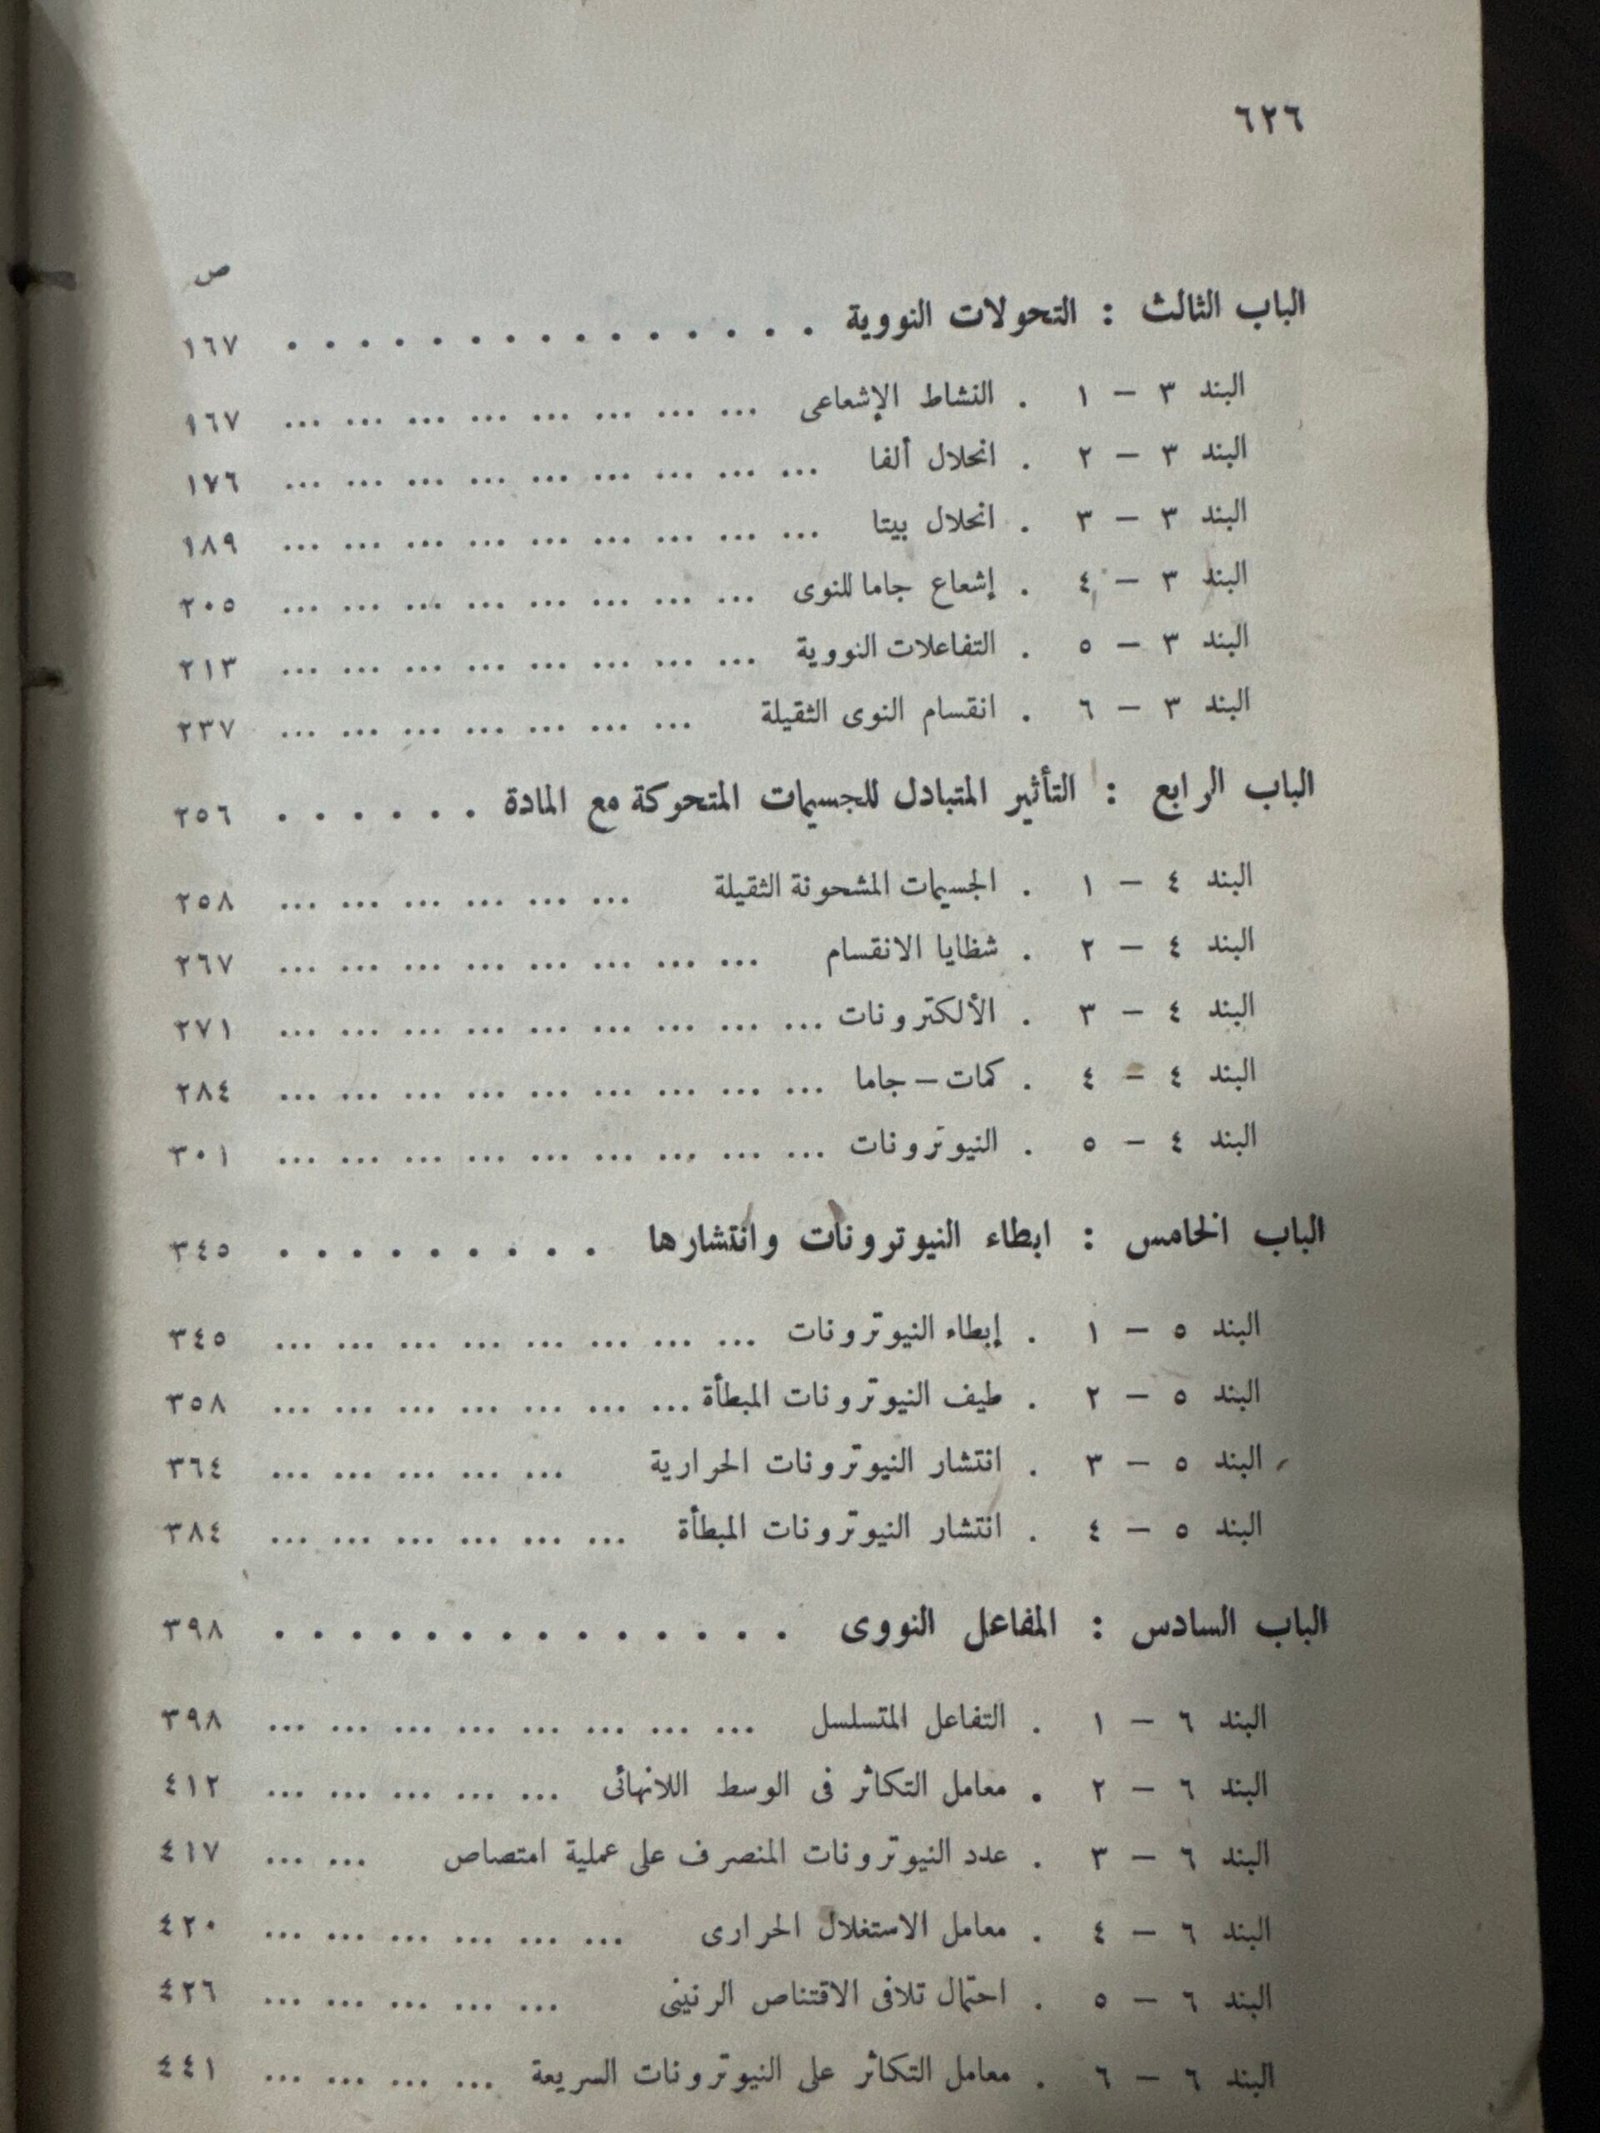 ٦٢٦
ص
الباب الثالث : التحولات النووية . . . . . . . . . . . . . . . ١٦٧
البند ٣ – ١ . النشاط الإشعاعى ... ... ... ... ... ... ... ... ١٦٧
البند ٣ – ٢ . انحلال ألفا ... ... ... ... ... ... ... ... ... ١٧٦
البند ٣ – ٣ . انحلال بيتا ... ... ... ... ... ... ... ... ... ١٨٩
البند ٣ – ٤ . إشعاع جاما للنوى ... ... ... ... ... ... ... ... ٢٠٥
البند ٣ – ٥ . التفاعلات النووية ... ... ... ... ... ... ... ... ٢١٣
البند ٣ – ٦ . انقسام النوى الثقيلة ... ... ... ... ... ... ... ٢٣٧
الباب الرابع : التأثير المتبادل للجسيمات المتحركة مع المادة . . . . . . ٢٥٦
البند ٤ – ١ . الجسيمات المشحونة الثقيلة ... ... ... ... ... ... ٢٥٨
البند ٤ – ٢ . شظايا الانقسام ... ... ... ... ... ... ... ... ٢٦٧
البند ٤ – ٣ . الألكترونات ... ... ... ... ... ... ... ... ... ٢٧١
البند ٤ – ٤ . كمات – جاما ... ... ... ... ... ... ... ... ... ٢٨٤
البند ٤ – ٥ . النيوترونات ... ... ... ... ... ... ... ... ... ٣٠١
الباب الخامس : ابطاء النيوترونات وانتشارها . . . . . . . . . ٣٤٥
البند ٥ – ١ . إبطاء النيوترونات ... ... ... ... ... ... ... ... ٣٤٥
البند ٥ – ٢ . طيف النيوترونات المبطأة ... ... ... ... ... ... ... ٣٥٨
البند ٥ – ٣ . انتشار النيوترونات الحرارية ... ... ... ... ... ٣٦٤
البند ٥ – ٤ . انتشار النيوترونات المبطأة ... ... ... ... ... ... ٣٨٤
الباب السادس : المفاعل النووى . . . . . . . . . . . . . . ٣٩٨
البند ٦ – ١ . التفاعل المتسلسل ... ... ... ... ... ... ... ... ٣٩٨
البند ٦ – ٢ . معامل التكاثر فى الوسط اللانهائى ... ... ... ... ... ٤١٢
البند ٦ – ٣ . عدد النيوترونات المنصرف على عملية امتصاص ... ... ٤١٧
البند ٦ – ٤ . معامل الاستغلال الحرارى ... ... ... ... ... ... ٤٢٠
البند ٦ – ٥ . احتمال تلافى الاقتناص الرنينى ... ... ... ... ... ٤٢٦
البند ٦ – ٦ . معامل التكاثر على النيوترونات السريعة ... ... ... ... ٤٤١